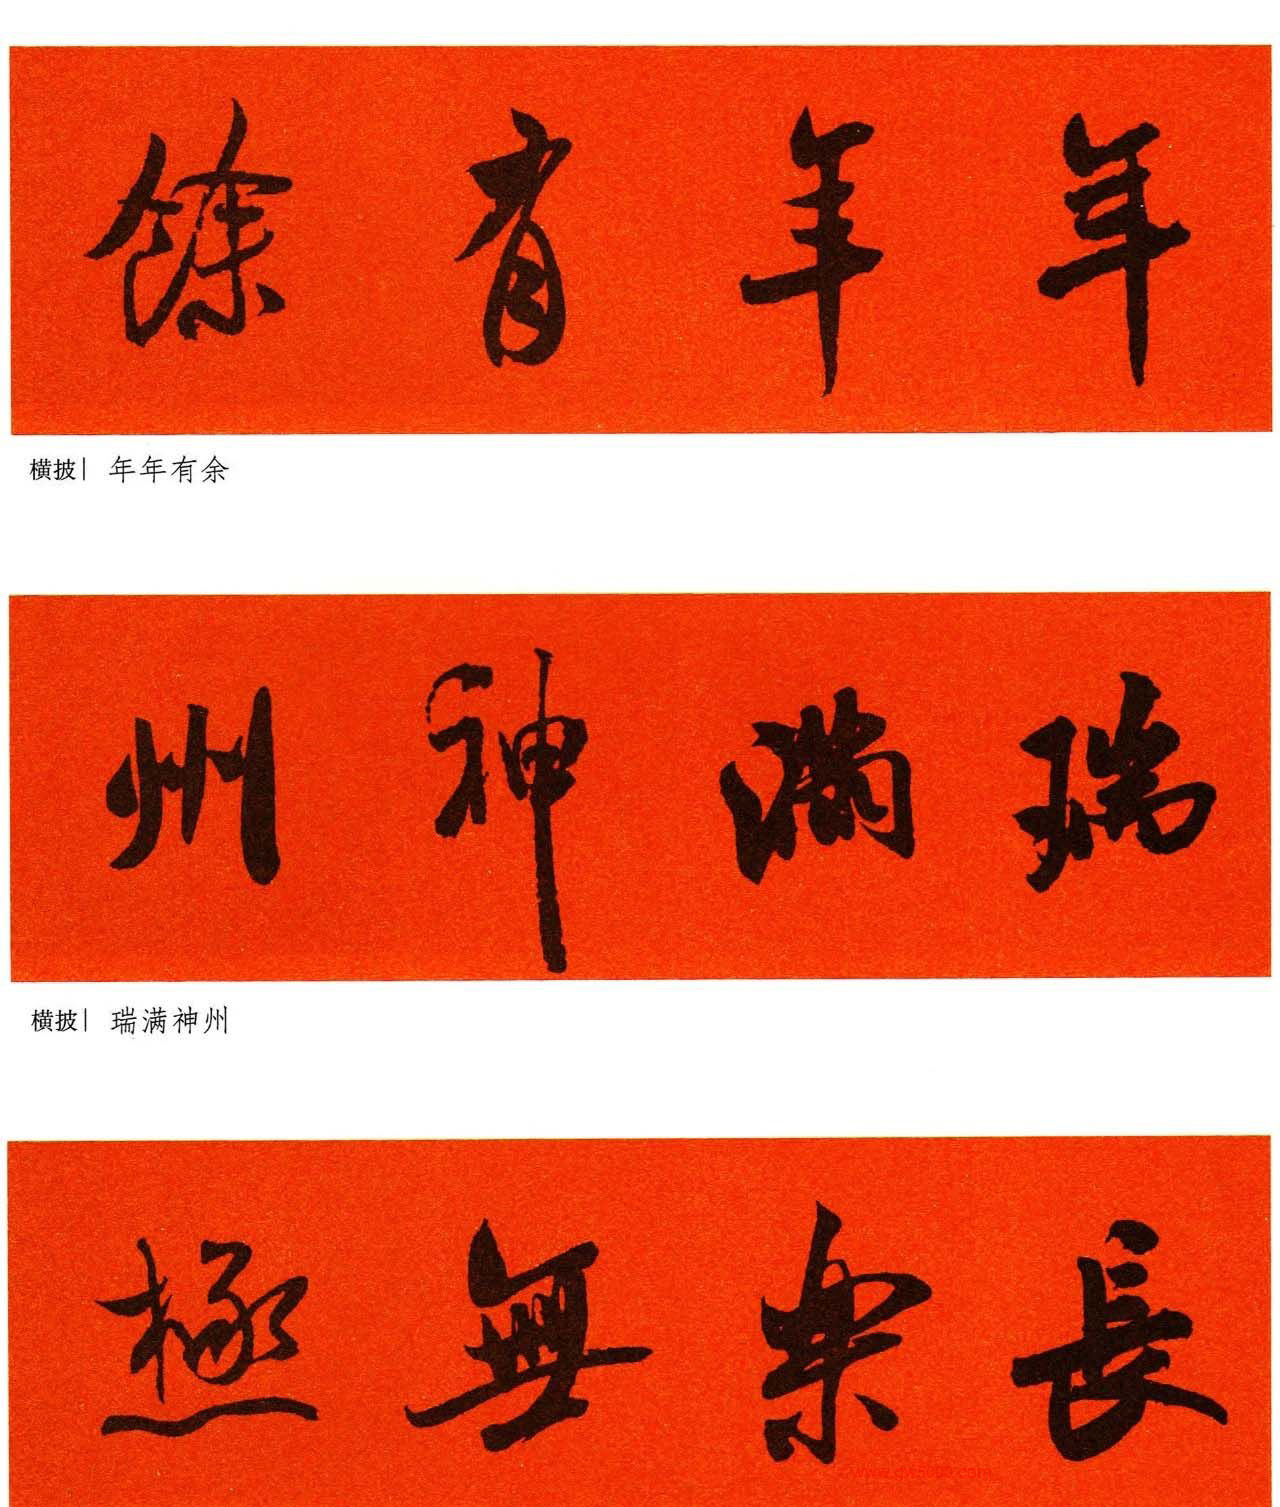 年年有餘
横披| 年年有余
瑞滿神州
横披| 瑞满神州
長樂無極